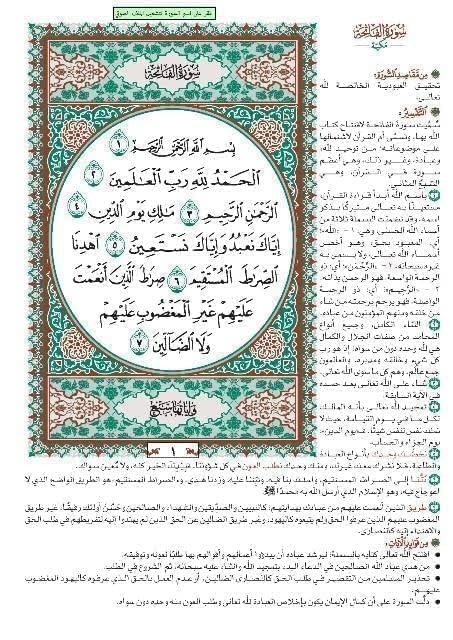 سُورَةُ الفَاتِحَةِ
بِسْمِ اللَّهِ الرَّحْمَٰنِ الرَّحِيمِ ١
الْحَمْدُ لِلَّهِ رَبِّ الْعَالَمِينَ ٢
الرَّحْمَٰنِ الرَّحِيمِ ٣ مَالِكِ يَوْمِ الدِّينِ ٤
إِيَّاكَ نَعْبُدُ وَإِيَّاكَ نَسْتَعِينُ ٥ اهْدِنَا
الصِّرَاطَ الْمُسْتَقِيمَ ٦ صِرَاطَ الَّذِينَ أَنْعَمْتَ
عَلَيْهِمْ غَيْرِ الْمَغْضُوبِ عَلَيْهِمْ
وَلَا الضَّالِّينَ ٧
وَآيَاتُهَا سَبْعٌ
١
سُورَةُ الفَاتِحَةِ
مَكِّيَّة
مِن مَّقَاصِدِ السُّورَةِ:
تحقيق العبودية الخالصة لله
تعالى.
التَّفْسِيرُ:
سُمِّيت سورة الفاتحة لافتتاح كتاب
الله بها، وتسمى أم القرآن لاشتمالها
على موضوعاته؛ من توحيد لله،
وعبادة، وغير ذلك، وهي أعظم
سورة في القرآن، وهي
السبع المثاني.
باسم الله أبدأ قراءة القرآن،
مستعينًا به تعالى متبركًا بذكر
اسمه. وقد تضمنت البسملة ثلاثة من
أسماء الله الحسنى، وهي: ١ - «الله»؛
أي: المعبود بحق، وهو أخص
أسماء الله تعالى، ولا يسمى به
غيره سبحانه. ٢ - «الرَّحْمَن»؛ أي: ذو
الرحمة الواسعة. فهو الرحمن بذاته.
٣ - «الرَّحِيم»؛ أي: ذو الرحمة
الواصلة. فهو يرحم برحمته من شاء
من خلقه ومنهم المؤمنون من عباده.
الثناء الكامل، وجميع أنواع
المحامد من صفات الجلال والكمال
هي لله وحده دون من سواه؛ إذ هو رب
كل شيء وخالقه ومدبره. و«العالمون»
جمع عالَم، وهم كل ما سوى الله تعالى.
ثناء على الله تعالى بعد حمده
في الآية السابقة.
تمجيد لله تعالى بأنه المالك
لكل ما في يوم القيامة، حيث لا
تملك نفس لنفس شيئًا. فـ«يوم الدين»:
يوم الجزاء والحساب.
نخصُّك وحدك بأنواع العبادة
والطاعة، فلا نشرك معك غيرك، ومنك وحدك نطلب العون في كل شؤوننا، فبيدك الخير كله، ولا مُعين سواك.
دُلَّنا إلى الصراط المستقيم، واسلك بنا فيه، وثبتنا عليه، وزدنا هدى. و«الصراط المستقيم» هو الطريق الواضح الذي لا
اعوجاج فيه، وهو الإسلام الذي أرسل الله به محمدًا ﷺ.
طريق الذين أنعمت عليهم من عبادك بهدايتهم؛ كالنبيين والصدِّيقين والشهداء والصالحين وحَسُنَ أولئك رفيقًا، غير طريق
المغضوب عليهم الذين عرفوا الحق ولم يتبعوه كاليهود، وغير طريق الضالين عن الحق الذين لم يهتدوا إليه لتفريطهم في طلب الحق
والاهتداء إليه كالنصارى.
مِن فَوَائِدِ الآيَاتِ:
• افتتح الله تعالى كتابه بالبسملة؛ ليرشد عباده أن يبدؤوا أعمالهم وأقوالهم بها طلبًا لعونه وتوفيقه.
• من هدي عباد الله الصالحين في الدعاء البدء بتمجيد الله والثناء عليه سبحانه، ثم الشروع في الطلب.
• تحذير المسلمين من التقصير في طلب الحق كالنصارى الضالين، أو عدم العمل بالحق الذي عرفوه كاليهود المغضوب
عليهم.
• دلَّت السورة على أن كمال الإيمان يكون بإخلاص العبادة لله تعالى وطلب العون منه وحده دون سواه.